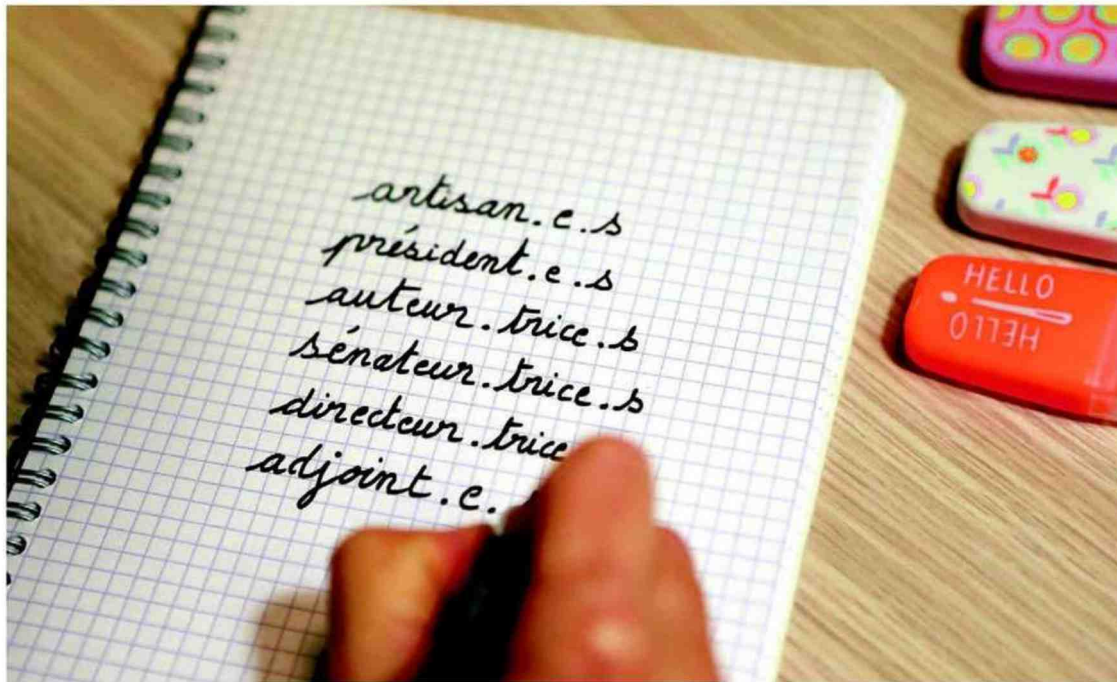 artisan.e.s
président.e.s
auteur.trice.s
sénateur.trice.s
directeur.trice
adjoint.e.
HELLO
HELLO